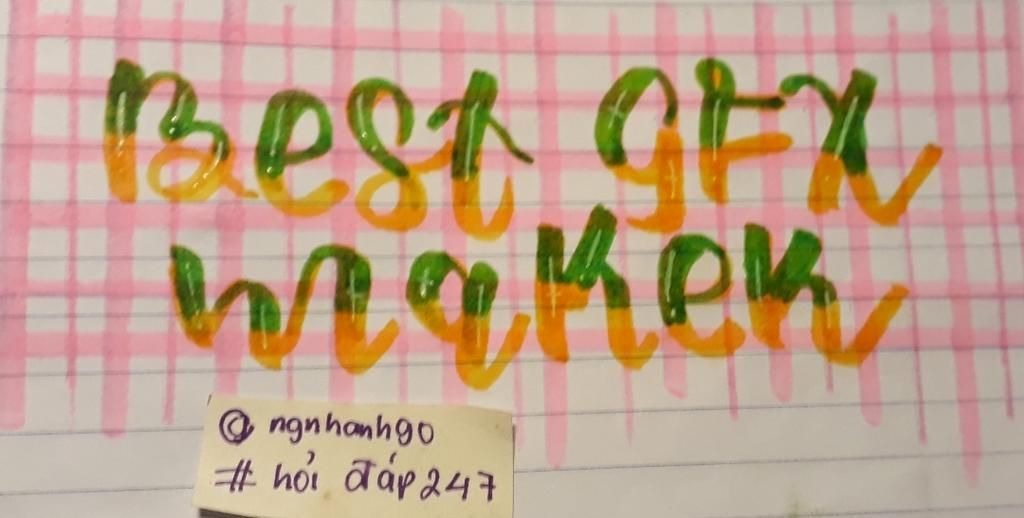 Best gFx
maker
@ngnhanh90
# hỏi đáp247